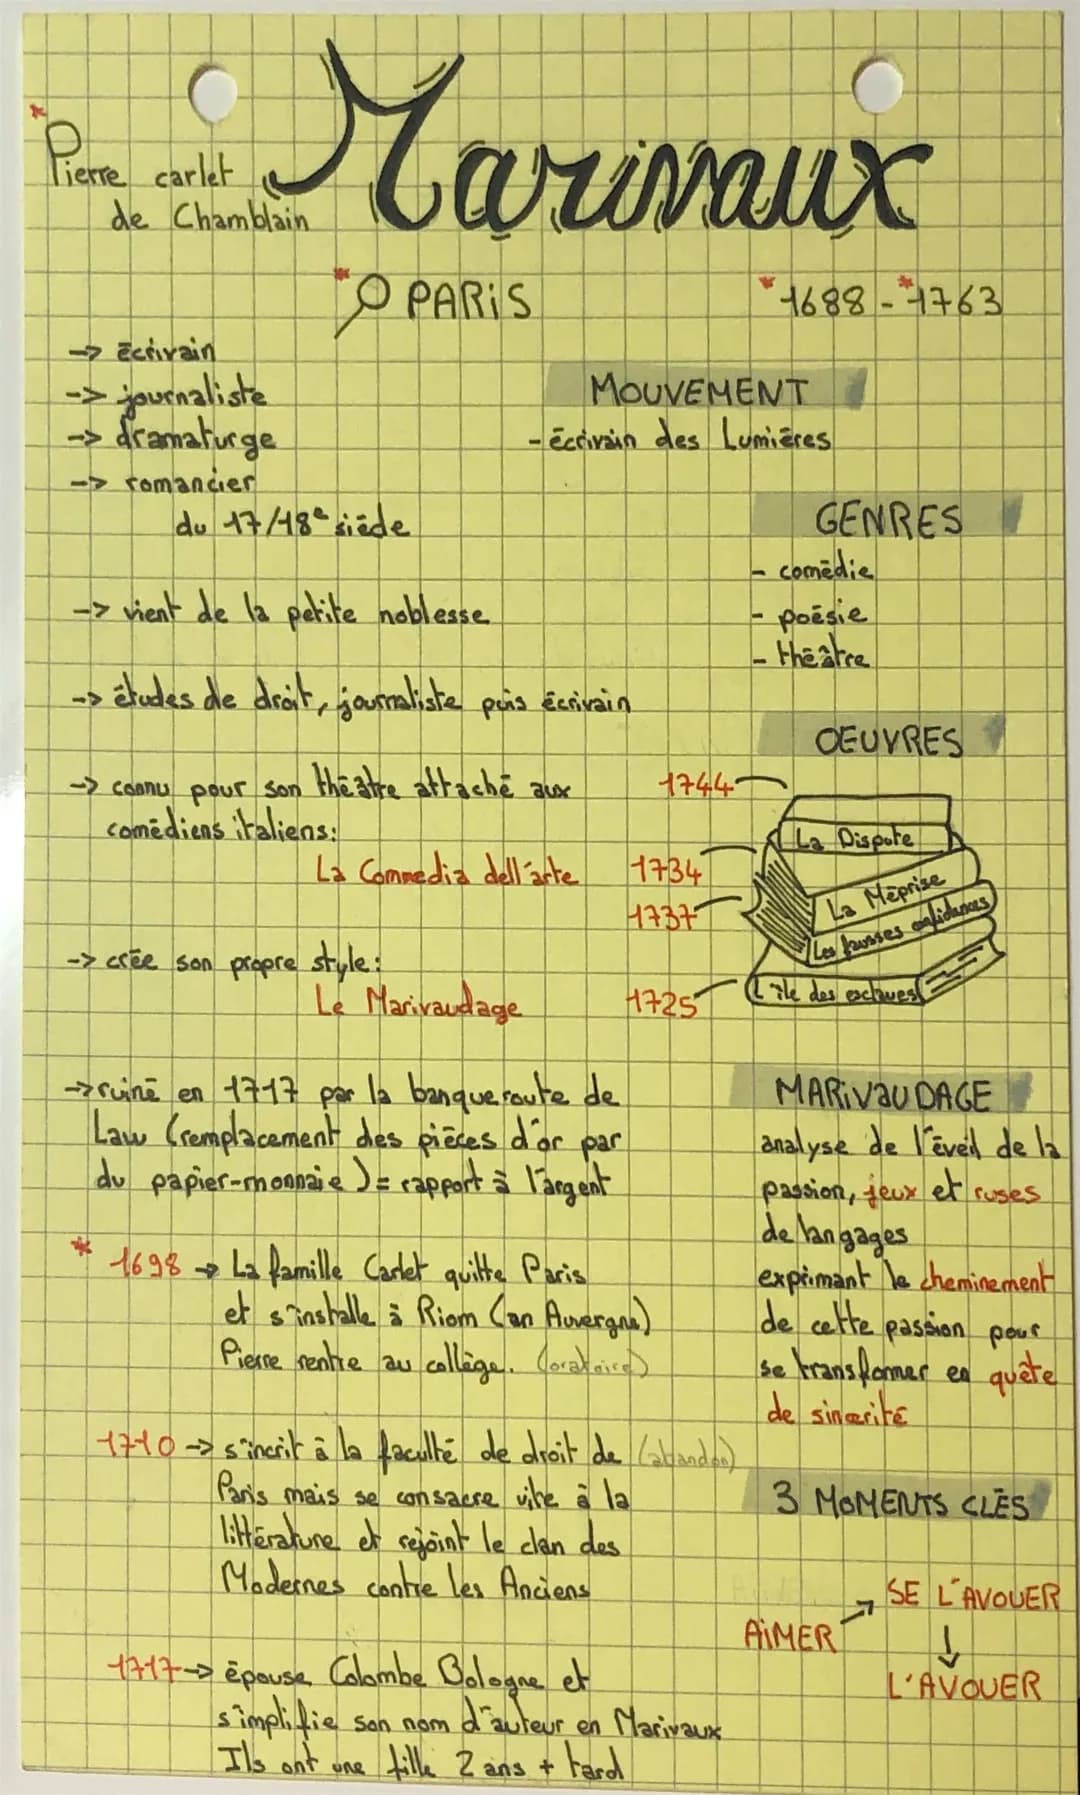 Pierre carlet
de Chamblain
Marivaux
PARIS
1688 - 1763
-> écrivain
-> journaliste
-> dramaturge
-> romancier
du 17/18e siècle
-> vient de la petite noblesse
-> études de droit, journaliste puis écrivain
-> connu pour son théâtre attaché aux
comédiens italiens:
La Commedia dell'arte
-> crée son propre style:
Le Marivaudage
-> ruiné en 1717 par la banqueroute de
Law (remplacement des pièces d'or par
du papier-monnaie) = rapport à l'argent
* 1698 -> La famille Carlet quitte Paris
et s'installe à Riom (en Auvergne)
Pierre rentre au collège. (oratoire)
1710 -> s'incrit à la faculté de droit de (abandon)
Paris mais se consacre vite à la
littérature et rejoint le clan des
Modernes contre les Anciens
1717 -> épouse Colombe Bologne et
s'implifie son nom d'auteur en Marivaux
Ils ont une fille 2 ans + tard
MOUVEMENT
- écrivain des Lumières
GENRES
- comédie
- poésie
- théâtre
OEUVRES
1744
La Dispute
1734
La Méprise
1737
Les fausses confidances
1725
L'île des esclaves
MARIVAUDAGE
analyse de l'éveil de la
passion, jeux et ruses
de langages
exprimant le cheminement
de cette passion pour
se transformer en quête
de sincérité
3 MOMENTS CLÉS
AIMER
SE L'AVOUER
L'AVOUER